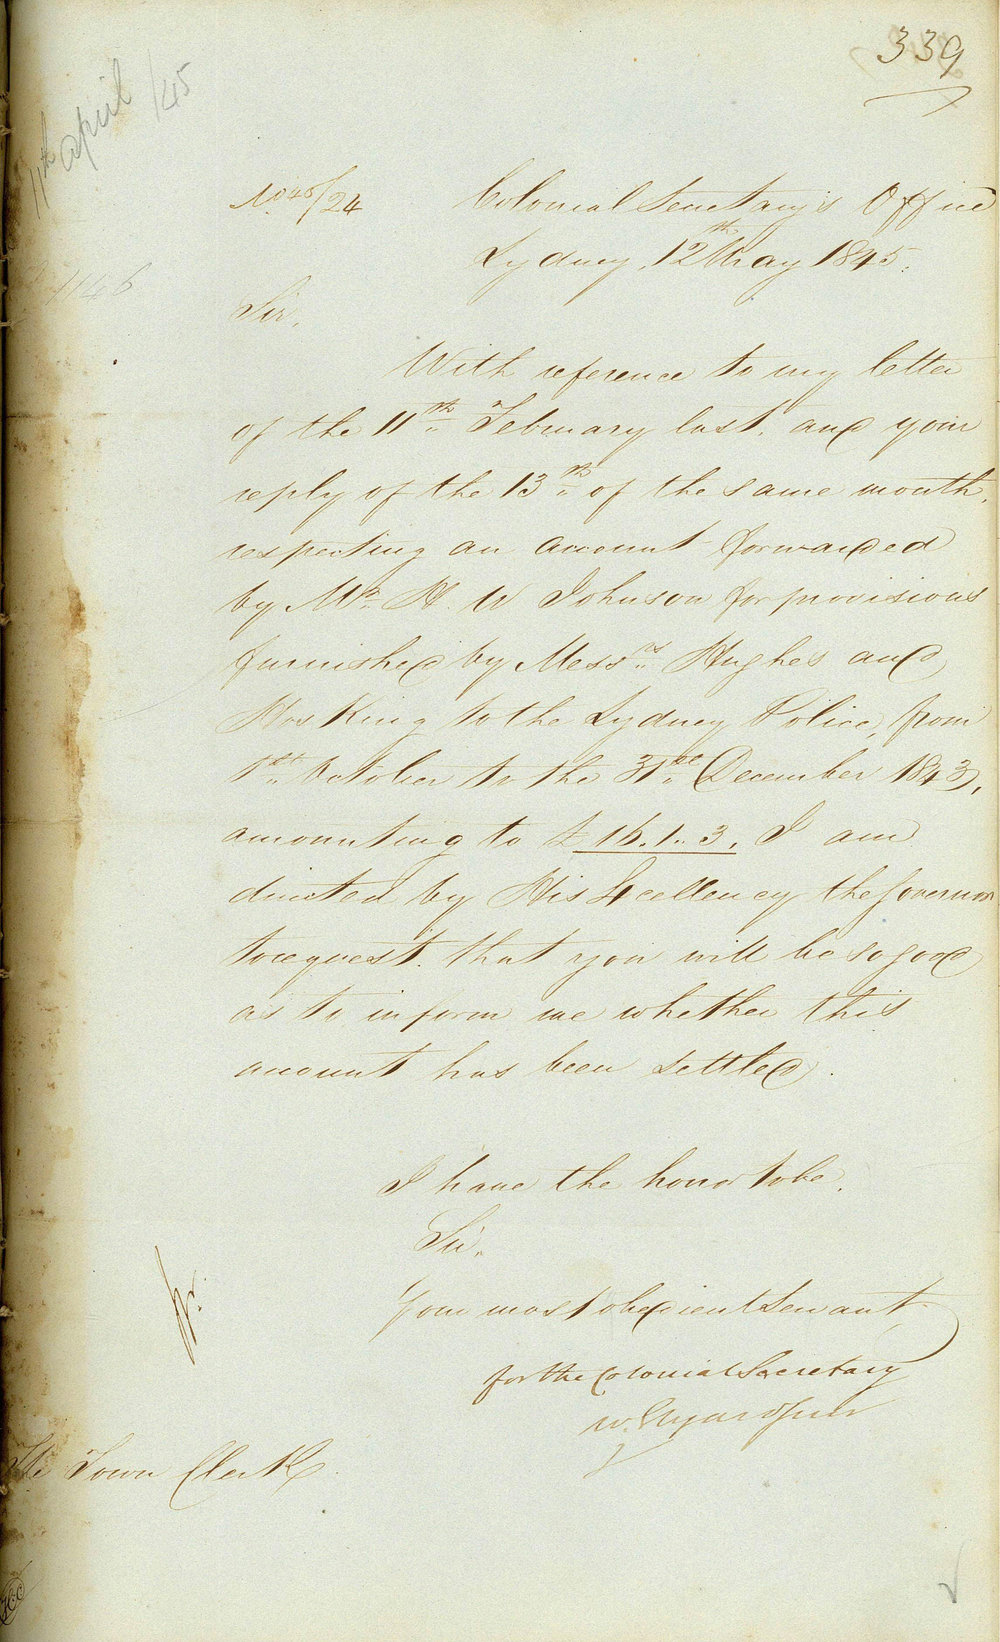 339
11th April /45
No 45/24 Colonial Secretary's Office
Sydney, 12th May 1845.
1146
Sir,
With reference to my letter
of the 11th February last, and your
reply of the 13th of the same month,
respecting an account forwarded
by Mr. H. W Johnson for provisions
furnished by Messrs Hughes and
Hosking to the Sydney Police, from
1st October to the 31st December 1843,
amounting to £16.1.3. I am
directed by His Excellency the Governor
to request that you will be so good
as to inform me whether this
account has been settled.
I have the honor to be,
Sir,
Your most obedient Servant,
for the Colonial Secretary
W. Elyard Junr
The Town Clerk